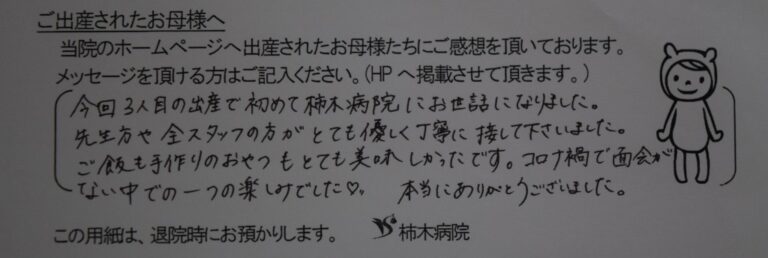 ご出産されたお母様へ
当院のホームページへ出産されたお母様たちにご感想を頂いております。
メッセージを頂ける方はご記入ください。(HPへ掲載させて頂きます。)
今回3人目の出産で初めて柿木病院にお世話になりました。
先生方や全スタッフの方がとても優しく丁寧に接して下さいました。
ご飯も手作りのおやつもとても美味しかったです。コロナ禍で面会が
ない中での一つの楽しみでした♡。 本当にありがとうございました。
この用紙は、退院時にお預かりします。 柿木病院